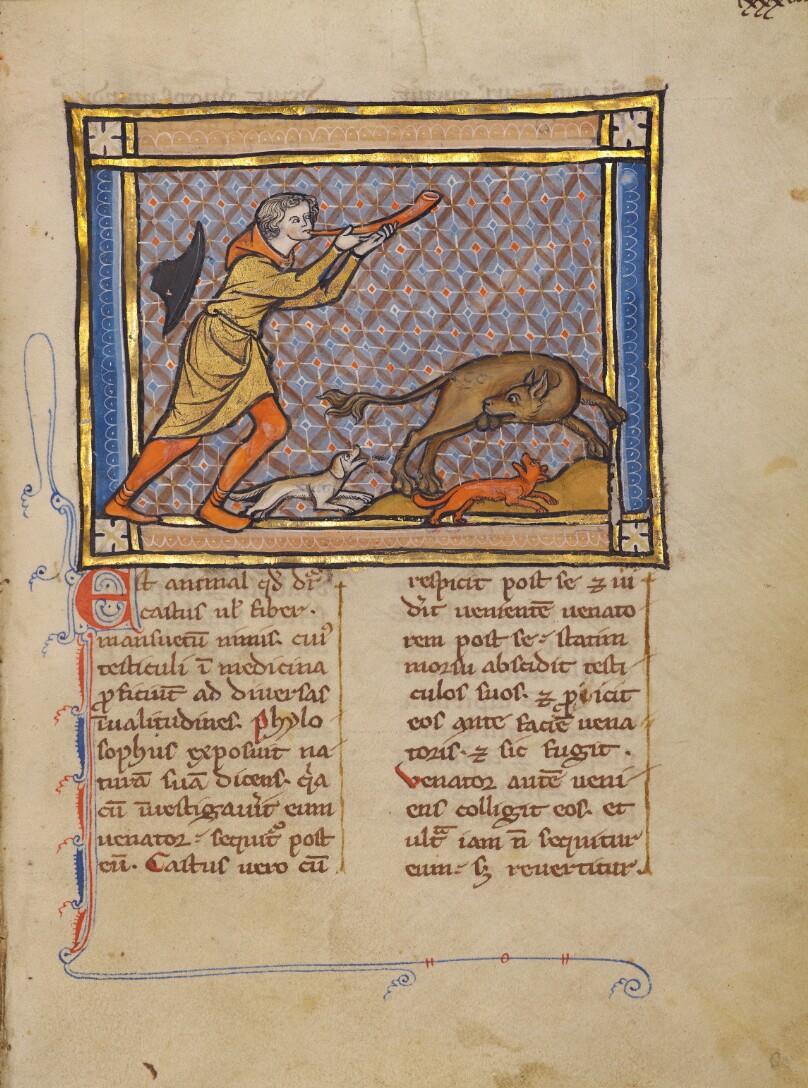 Est animal qd dr̄
castus ul̓ fiber.
mansuetū nimis. cui᷒
testiculi ī medicina
ꝓficiūt ad diuersas
īualitudines. phylo
sophus exposuit na
turā suā dicens. qͥa
cū īuestigauit̓ eum
uenator᷒ sequit᷒ post
eū. Castus uero cū
respicit post se ⁊ ui
dīt uenientē uenato
rem post se᷒ statim
morsu abscidit testi
culos suos. ⁊ ꝓicit
eos ante faciē uena
toris. ⁊ sic fugit.
Venator autē ueni
ens colligit eos. et
ultͣ iam n̄ sequitur
eum᷒ sꝫ reuertitur.